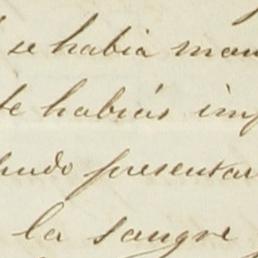 se habia man
te habias imp
pudo presentar
la sangre